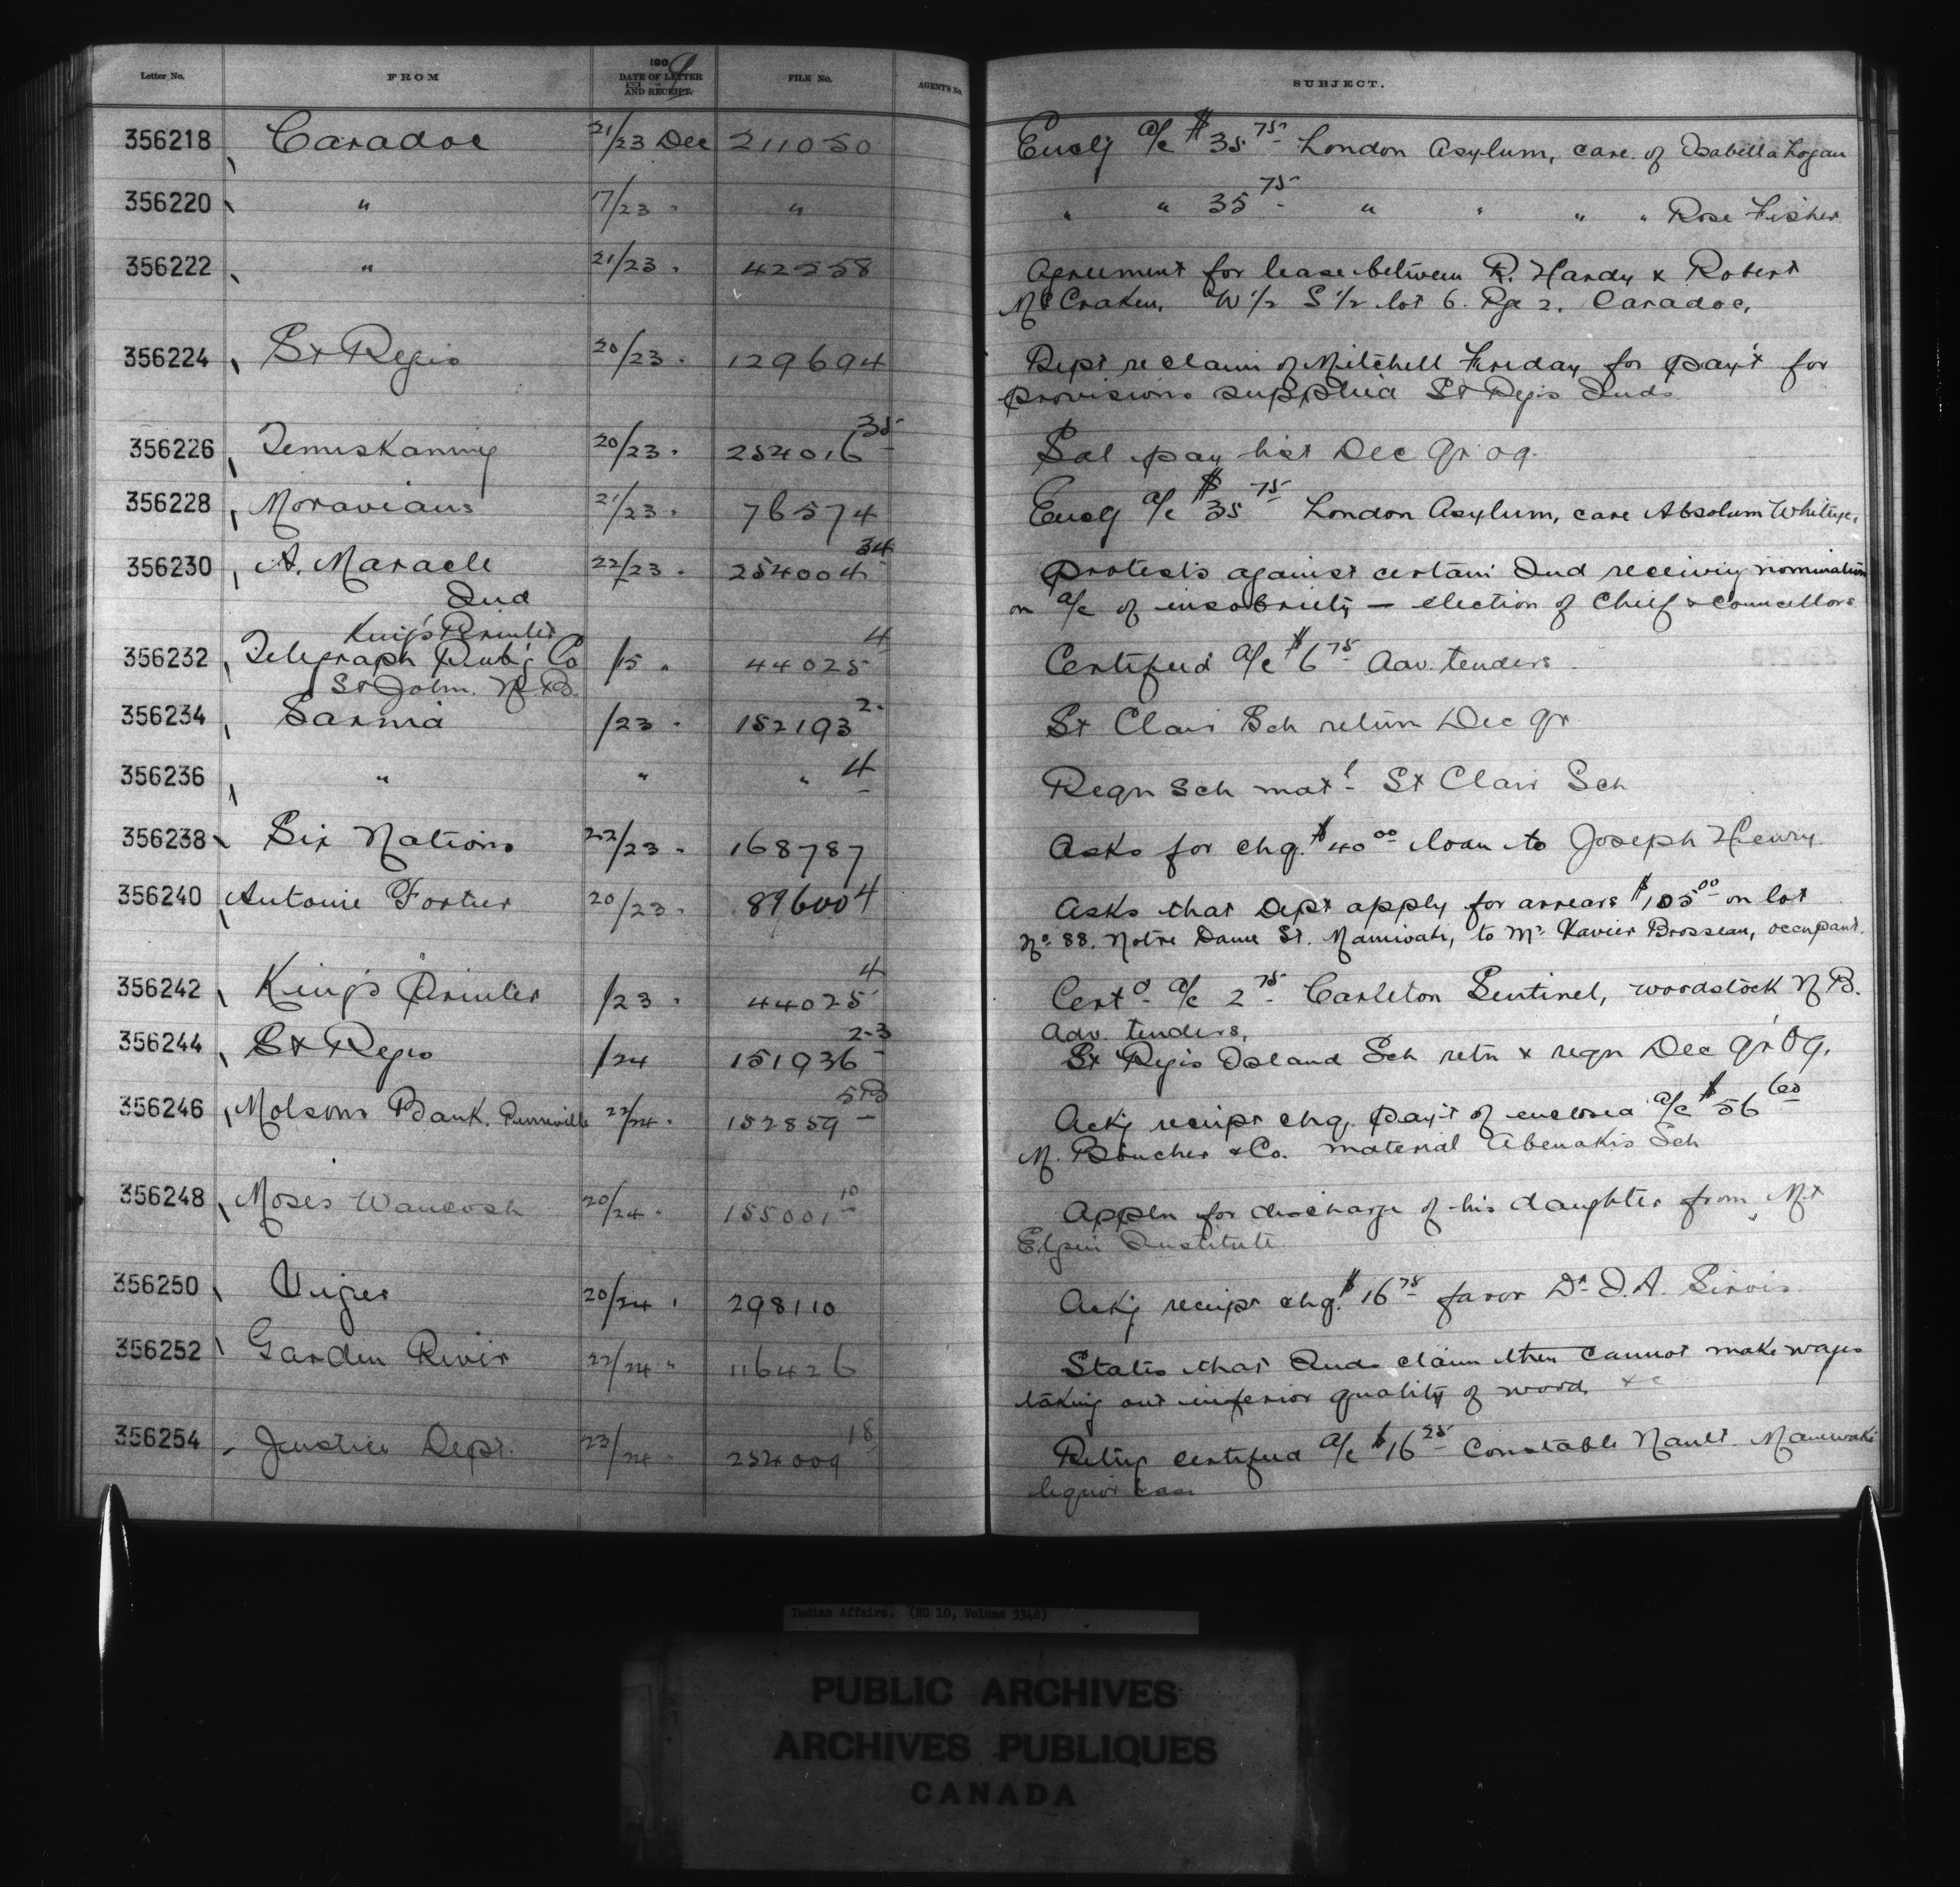 Letter No. FROM 1909 DATE OF LETTER AND RECEIPT. FILE No. AGENT'S No. SUBJECT.
356218 Caradoc 21/23 Dec 211050 Encl'g a/c $35 75 London Asylum, care of Isabella Logan
356220 " 17/23 " " " " 35 75 " " " " Rose Fisher
356222 " 21/23 " 42558 Agreement for lease between R. Hardy & Robert
McCraken, W 1/2 S 1/2 lot 6. Rge 2. Caradoc,
356224 St Regis 20/23 " 129694 Rept re claim of Mitchell Friday for pay't for
provisions supplied St Regis Inds
356226 Temiskaming 20/23 " 254016 35 Sal pay list Dec qr 09.
356228 Moravians 21/23 " 76574 Encl'g a/c $35 75 London Asylum, care Absolum Whiteye.
356230 A. Maracle 22/23 " 254004 34 Protests against certain Ind receiving nomination
Ind on a/c of insobriety — election of Chief & Councillors
King's Printer
356232 Telegraph Pub'g Co /15 " 44025 4 Certified a/c $6 75 Adv. tenders
St John. N.B.
356234 Sarnia /23 " 152193 2 St Clair Sch return Dec qr
356236 " " " 4 Reqn sch mat'l St Clair Sch
356238 Six Nations 22/23 " 168787 Asks for chq. $40 00 loan to Joseph Henry.
356240 Antoine Fortier 20/23 " 896004 Asks that Dept apply for arrears $105 00 on lot
No 88. Notre Dame St. Maniwaki, to Mr Xavier Brosseau, occupant.
356242 King's Printer /23 " 44025 4 Certd a/c 2 75 Carleton Sentinel, Woodstock N.B.
Adv. tenders,
356244 St Regis /24 151936 2-3 St Regis Island Sch retn & reqn Dec qr 09.
356246 Molsons Bank. Pierreville 22/24 " 152859 5B Ack'g receipt chq. pay't of enclosed a/c $56 60
M. Boucher & Co. material Abenakis Sch
356248 Moses Waucosh 20/24 " 155001 10 Appln for discharge of his daughter from Mt
Elgin Institute
356250 Viger 20/24 " 298110 Ack'g receipt chq. $16 75 favor Dr J. A. Sirois
356252 Garden River 22/24 " 116426 States that Inds claim then cannot make wages
taking out inferior quality of wood, &c
356254 Justice Dept. 23/24 " 254009 18 Ret'g certified a/c $16 25 Constable Nault. Maniwaki
liquor case
Indian Affairs. (RG 10, Volume 3348)
PUBLIC ARCHIVES
ARCHIVES PUBLIQUES
CANADA